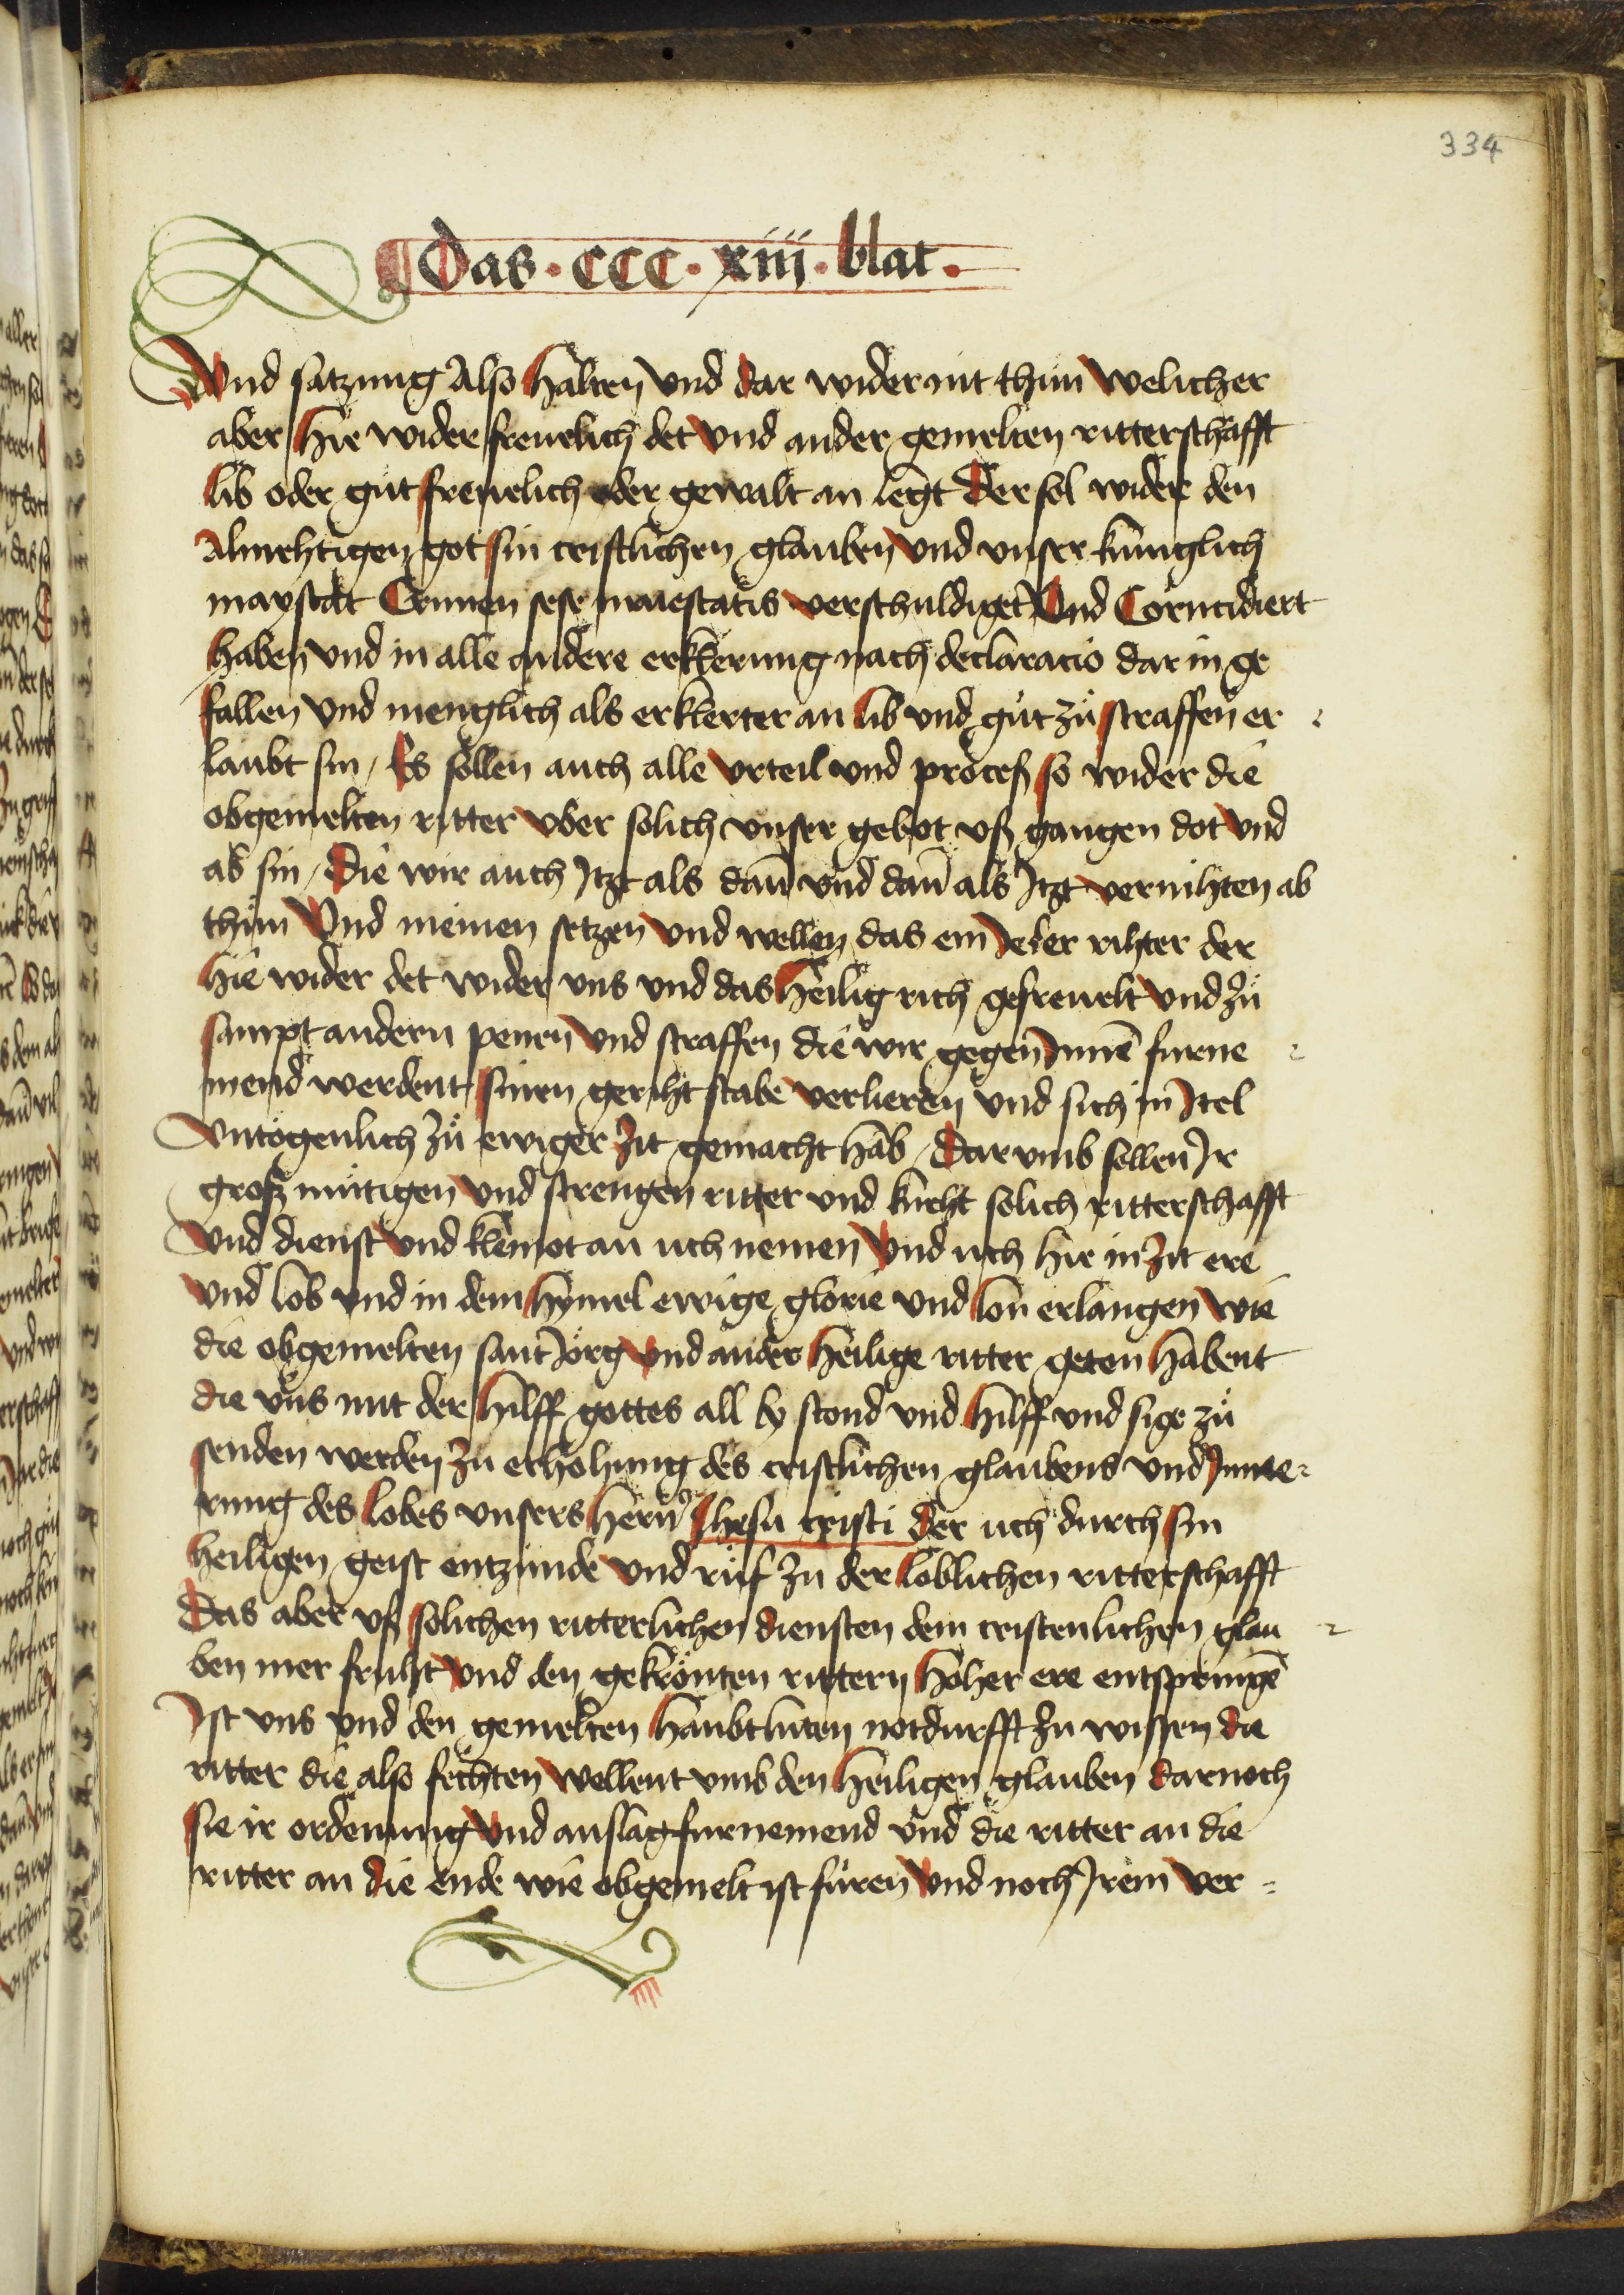 334
Das · CCC · xiii · blat ·
Vnd satzung Also halten vnd dar wider nit thun welicher
aber hie wider freuelich det vnd ander gemelten ritterschafft
lib oder gut freuelich oder gewalt an legt Der sol wider den
Almehtigen got sin cristlichen glauben vnd vnser kunglich
mayestat Crimen lese maiestatis verschuldiget Vnd
haben vnd in alle andere erklerung nach declaracio dar in ge
fallen vnd menglich als erklerter an lib vnd gut zu straffen er
laubt sin / Es sollen auch alle vrteil vnd process so wider die
obgemelten ritter vber solich vnser gebot vss gangen dot vnd
ab sin / Die wir auch Itzt als dañ vnd dañ als Itzt vernihten ab
thun Vnd meinen setzen vnd wellen das ein Jeder rihter der
hie wider det wider vns vnd das heilig rich gefreuelt vnd zu
sampt andern penen vnd straffen die wir gegen Innē furne
mend werdent sinen geriht stabe verlieren vnd sich in Itel
vntogenlich zu ewiger zit gemacht hab / Dar vmb sollen Ir
grosz mutigen vnd strengen ritter vnd kneht solich ritterschafft
Vnd dienst vnd kleinot an uch nemen Vnd uch hie in zit ere
vnd lob vnd in dem hymel ewige glorie vnd lon erlangen wie
die obgemelten sant Jörg vnd ander heilige ritter geten habent
die vns mit der hilff gottes all by stond vnd hilff vnd sige zu
senden werden zu erhohung des cristlichen glaubens vnd
rung des lobes vnsers herñ Jhesu cristi Der uch durch sin
heiligen geist entzunde vnd ruf zu der loblichen ritterschafft
Das aber vss solichen ritterlichen diensten dem cristenlichen glau
ben mer fruht vnd den gekrönten rittern hoher ere entspringē
Ist vns vnd den gemelten haubtluten notdurfft zu wissen die
ritter die also fechten wellent vmb den heiligen glauben darnoch
sie ir ordenung vnd anslag furnemend vnd die ritter an die
ritter an die ende wie obgemelt ist füren vnd noch Irem ver=